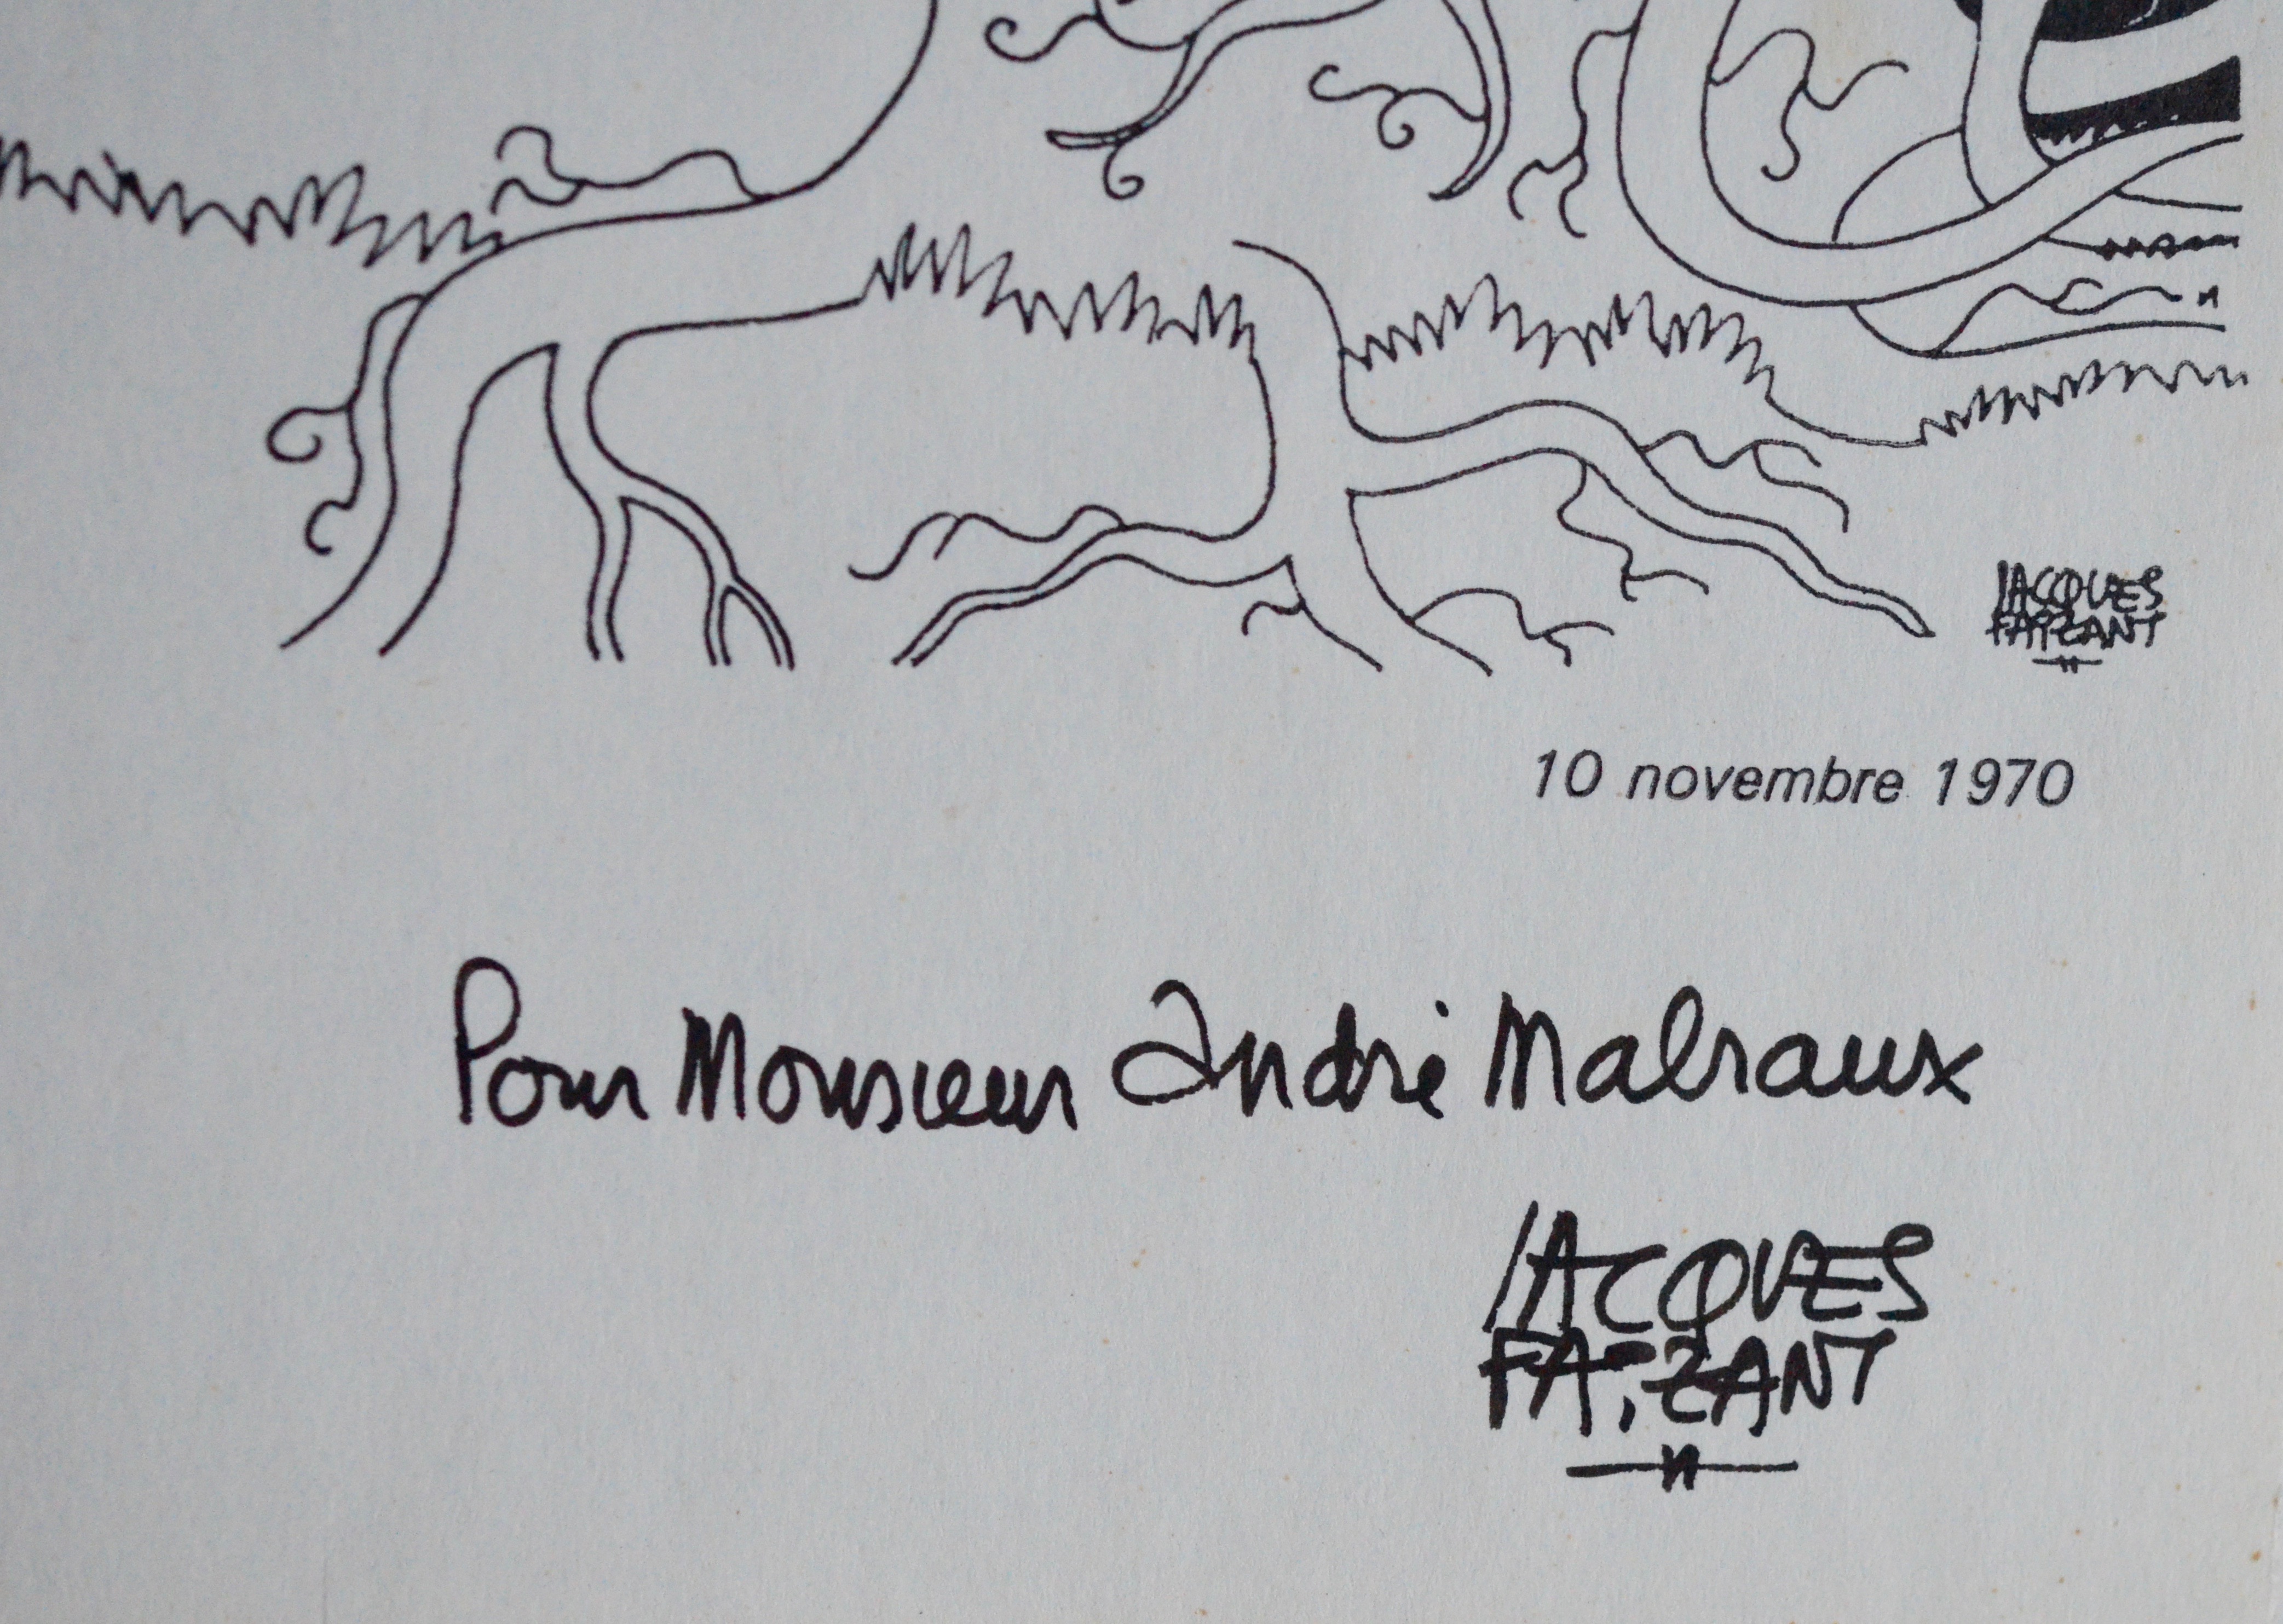 JACQUES
FAIZANT
10 novembre 1970
Pour Monsieur André Malraux
JACQUES
FAIZANT